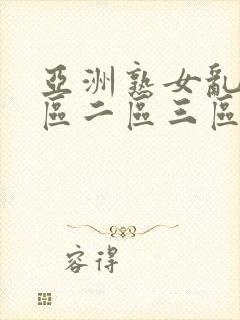 亞洲熟女亂
區二區三區
容得